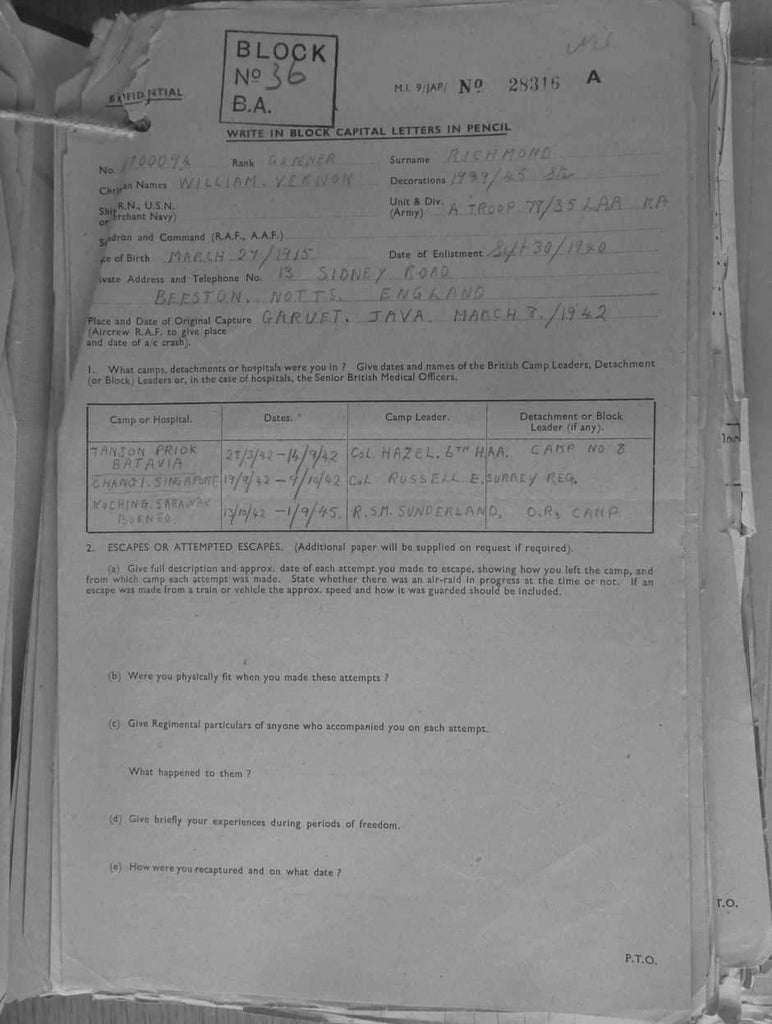 BLOCK
Nº 36
B.A.
M.I. 9/JAP/ Nº 28316 A
WRITE IN BLOCK CAPITAL LETTERS IN PENCIL
No. Rank GUNNER Surname RICHMOND
Names WILLIAM. VERNON Decorations 1939/45 Star
R.N., U.S.N. Unit & Div. A TROOP 78/35 LAA RA
or erchant Navy) (Army)
dron and Command (R.A.F., A.A.F.)
e of Birth MARCH 27/1915 Date of Enlistment Sept 30/1940
ivate Address and Telephone No. 13 SIDNEY ROAD
BEESTON. NOTTS. ENGLAND
Place and Date of Original Capture GARUET. JAVA. MARCH 8./1942
(Aircrew R.A.F. to give place
and date of a/c crash).
1. What camps, detachments or hospitals were you in ? Give dates and names of the British Camp Leaders, Detachment
(or Block) Leaders or, in the case of hospitals, the Senior British Medical Officers.
Camp or Hospital. Dates. Camp Leader. Detachment or Block
Leader (if any).
TANJON PRIOK 27/3/42 - 14/9/42 Col. HAZEL. 6TH H.AA. CAMP NO 8
BATAVIA
CHANGI. SINGAPORE 19/9/42 - 9/10/42 Col RUSSELL E. SURREY REG.
KUCHING. SARAWAK 13/10/42 - 1/9/45. R.S.M. SUNDERLAND. O.Rs CAMP
BORNEO
2. ESCAPES OR ATTEMPTED ESCAPES. (Additional paper will be supplied on request if required).
(a) Give full description and approx. date of each attempt you made to escape, showing how you left the camp, and
from which camp each attempt was made. State whether there was an air-raid in progress at the time or not. If an
escape was made from a train or vehicle the approx. speed and how it was guarded should be included.
(b) Were you physically fit when you made these attempts ?
(c) Give Regimental particulars of anyone who accompanied you on each attempt.
What happened to them ?
(d) Give briefly your experiences during periods of freedom.
(e) How were you recaptured and on what date ?
T.O.
P.T.O.